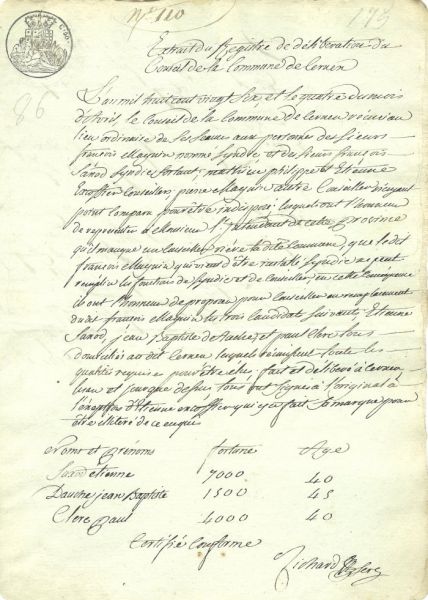 N.º 110
175
86
Extrait du Registre de délibération du
Conseil de la Commune de Cernex
L'an mil huit cent vingt six, et le quatre du mois
d'Avril, le Conseil de la Commune de Cernex réuni au
lieu ordinaire de ses séances aux personnes des Sieurs
françois Maquin nommé Syndic, et des Sieurs françois
Sanod Syndic sortant; mathieu philippe et Etienne
Excoffier Conseillers, pierre Maquin autre Conseiller n'ayant
point comparu pour être indisposé: lesquels ont l'honneur
de représenter à Monsieur l'Intendant de cette Province
qu'il manque un Conseiller à la dite Commune, que le dit
françois Maquin qui vient d'être installé Syndic ne peut
remplir les fonctions de Syndic et de Conseiller, en cette conséquence
ils ont l'honneur de proposer pour Conseiller en remplacement
du dit françois Maquin les trois Candidats suivants, Etienne
Sanod, jean Baptiste et paul Clerc tous
domiciliés au dit Cernex lesquels réunissent toutes les
qualités requises pour être élus, fait et délibéré à Cernex
lieu et jour que dessus tous ont signé à l'original à
l'exception d'Etienne excoffier qui y a fait sa marque pour
être illitéré de ce enquis
Noms et Prénoms fortune Age
Sanod étienne 7000 40
jean Baptiste 1500 45
Clerc Paul 4000 40
Certifié Conforme
Richard